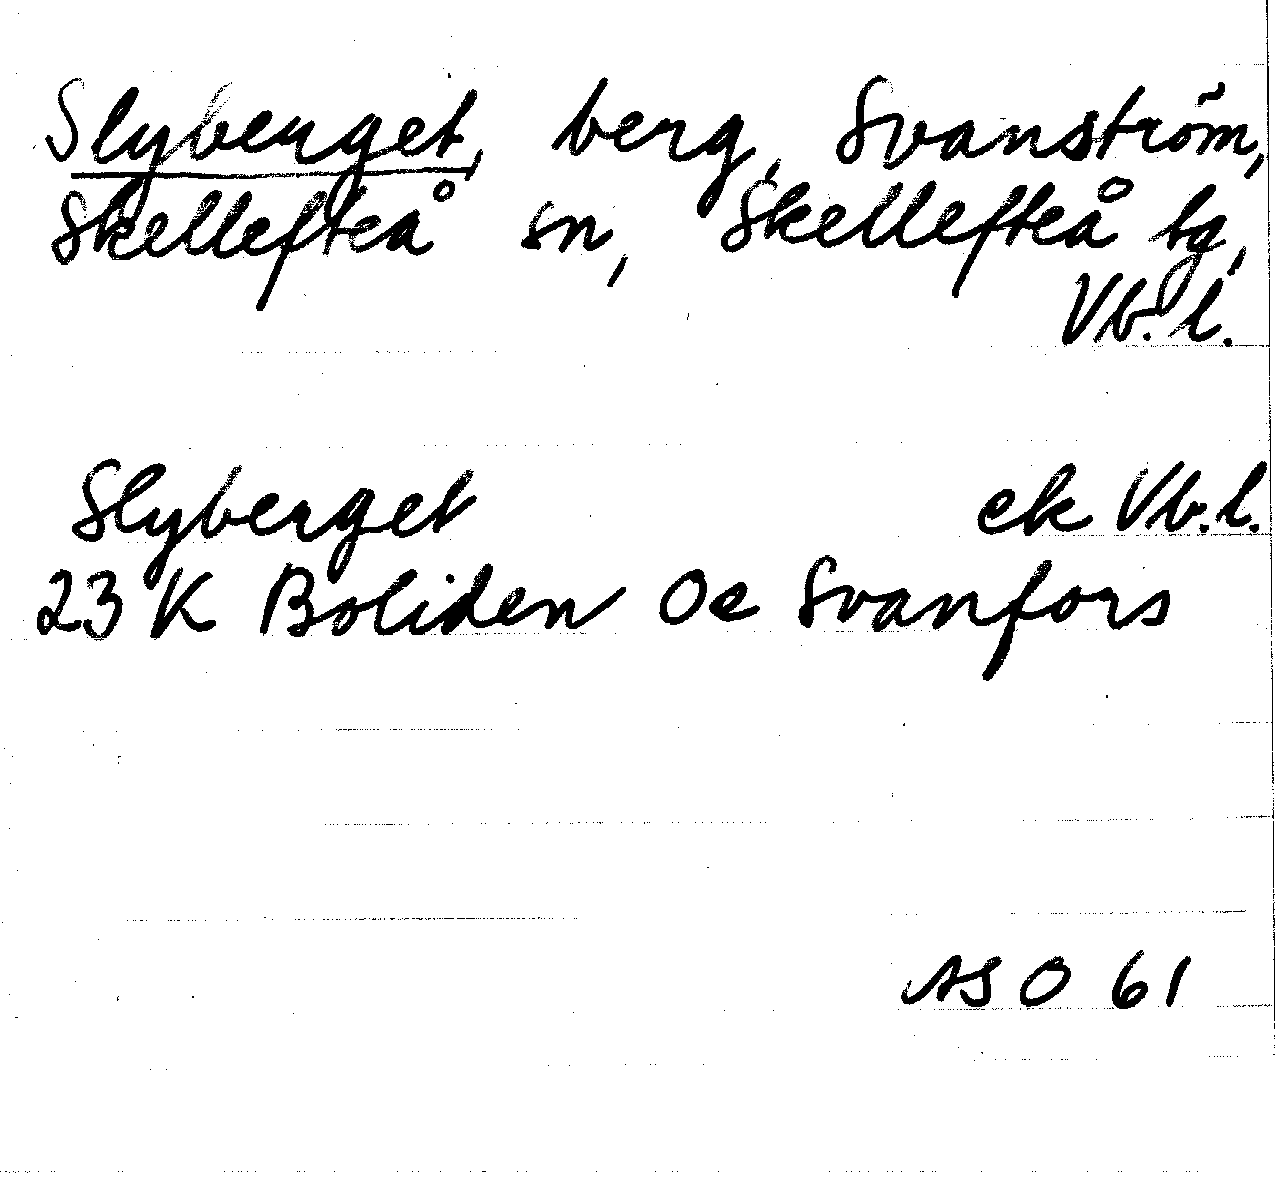 Slyberget, berg, Svanström,
Skellefteå sn, Skellefteå tg,
Vb. l.
Slyberget ek Vb. l.
23 K Boliden Oe Svanfors
AS O 61